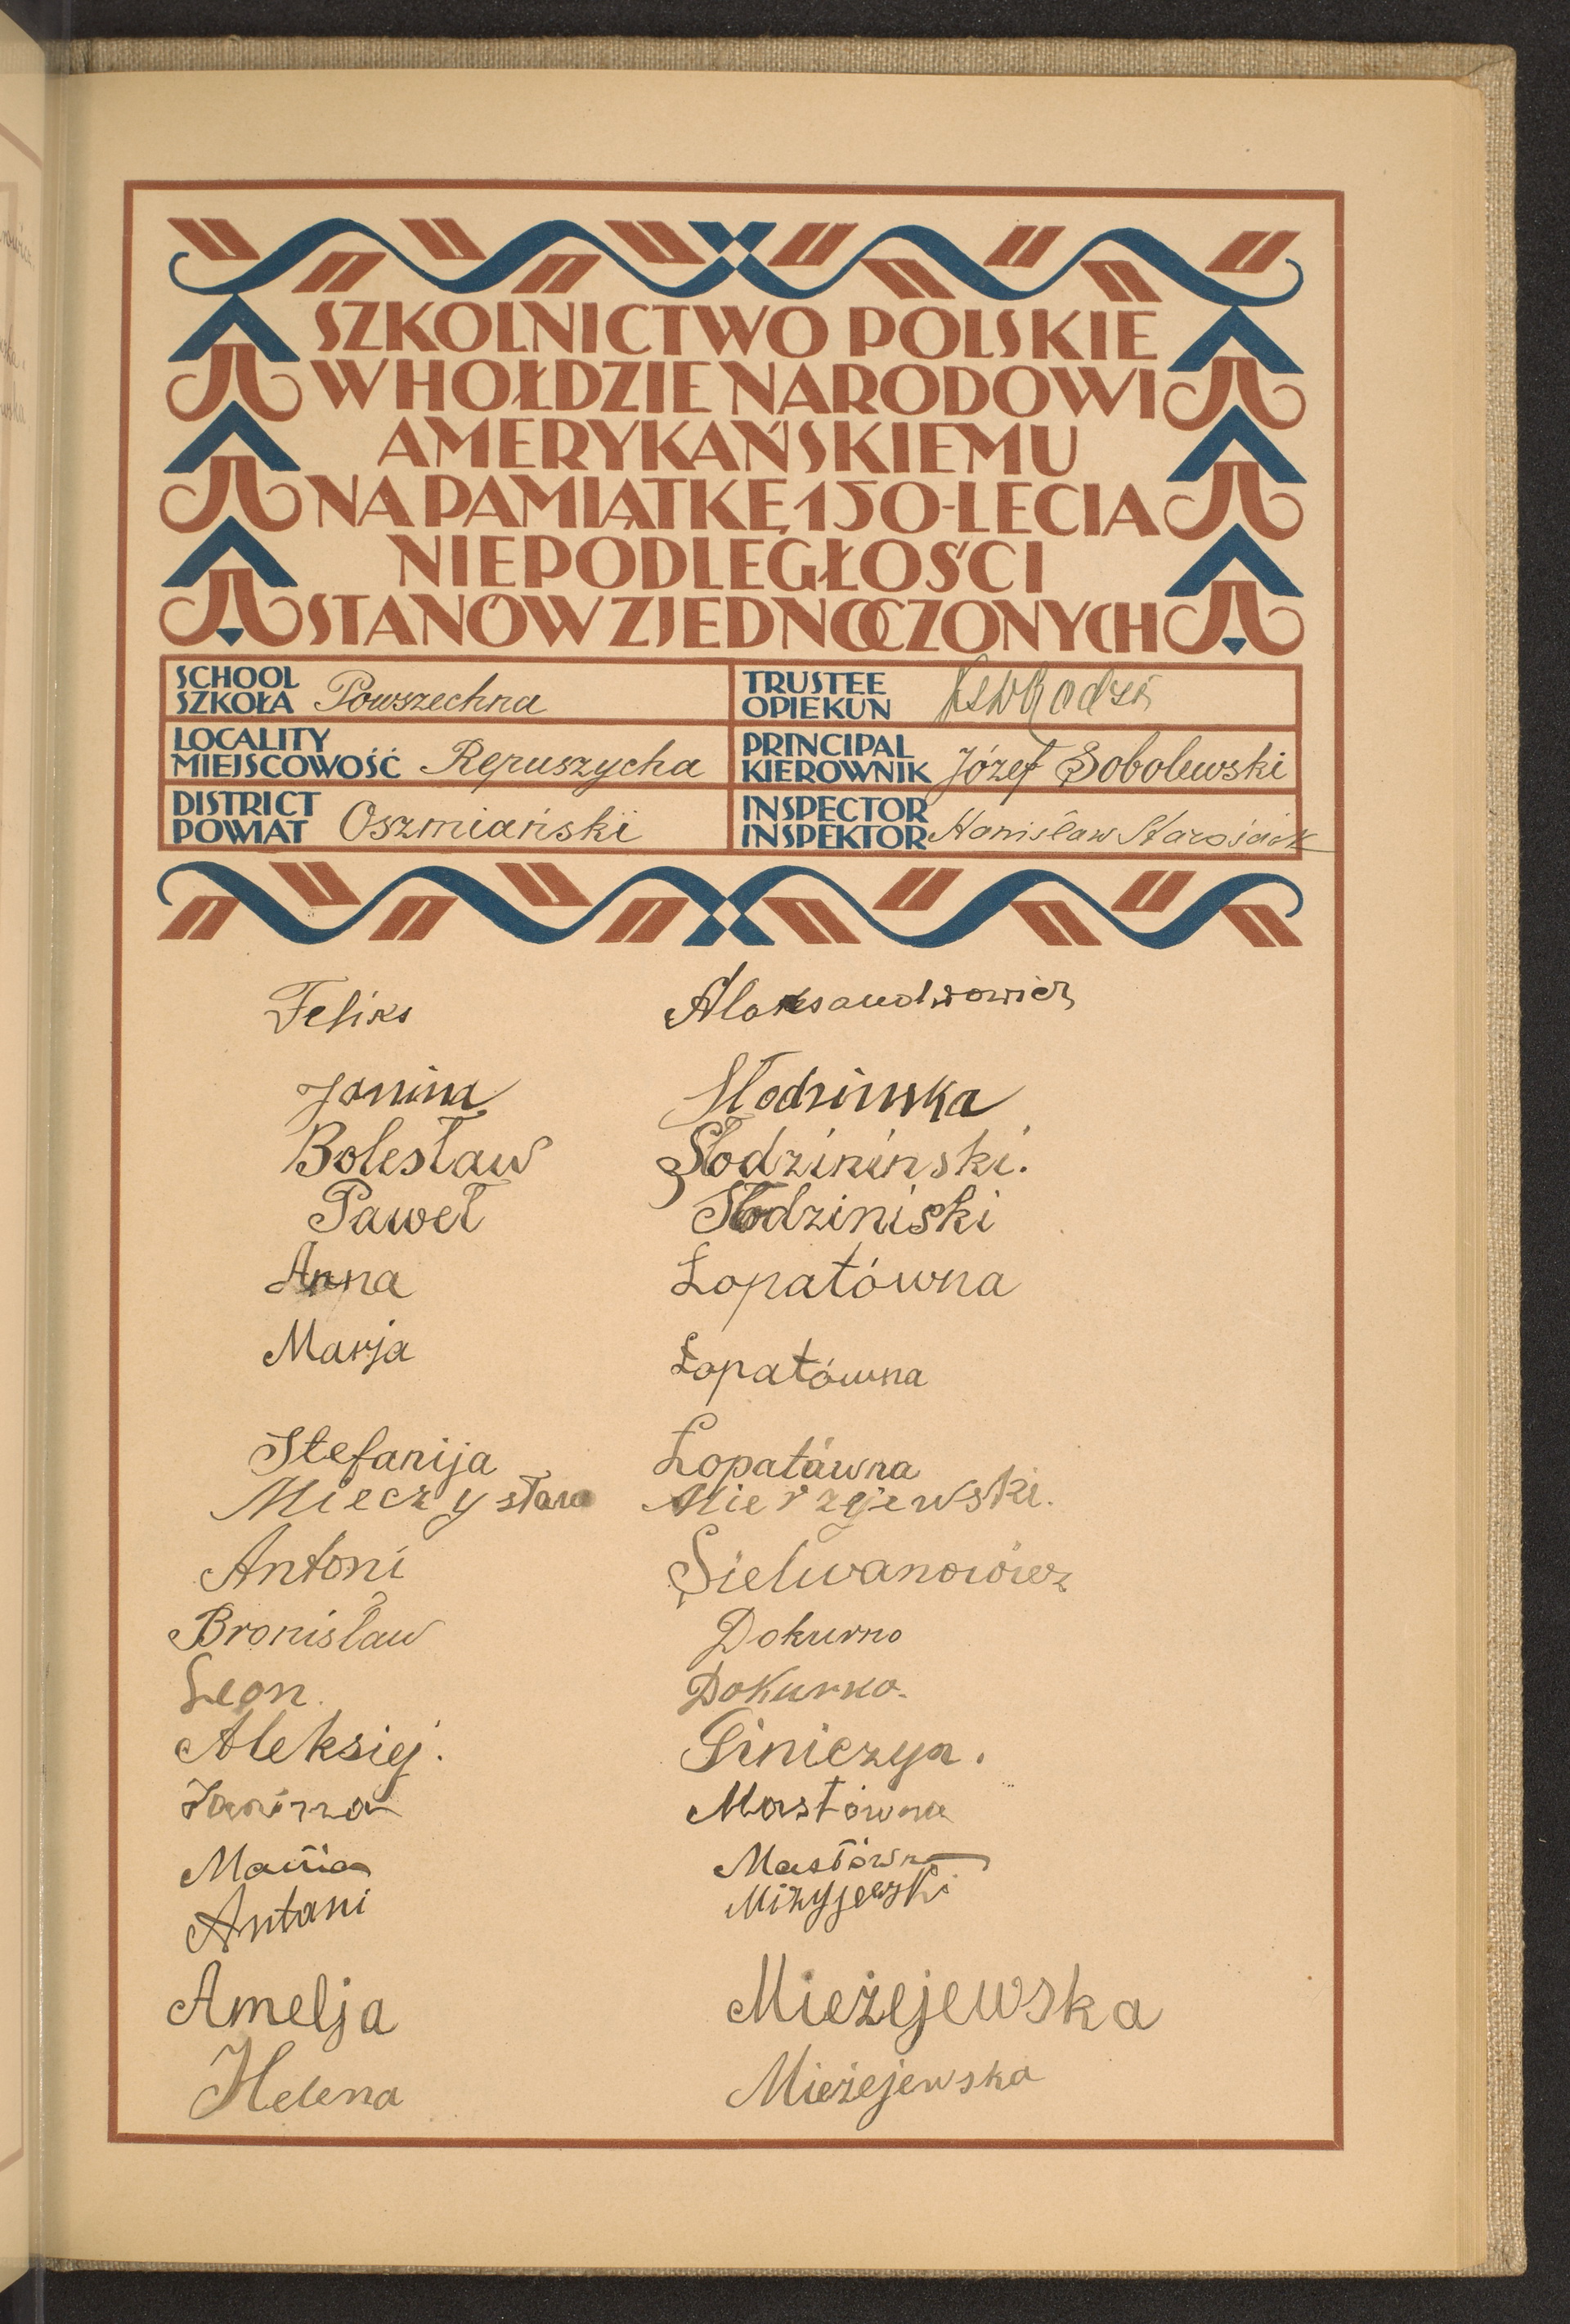 SZKOLNICTWO POLSKIE
W HOŁDZIE NARODOWI
AMERYKAŃSKIEMU
NA PAMIĄTKĘ 150-LECIA
NIEPODLEGŁOŚCI
STANÓW ZJEDNOCZONYCH
SCHOOL
SZKOŁA Powszechna
TRUSTEE
OPIEKUN
LOCALITY
MIEJSCOWOŚĆ Repuszycha
PRINCIPAL
KIEROWNIK Józef Sobolewski
DISTRICT
POWIAT Oszmiański
INSPECTOR
INSPEKTOR Stanisław Starościak
Feliks Aleksandrowicz
Janina Słodzinska
Bolesław Słodzininski.
Paweł Słodziniski
Anna Łopatówna
Marja Łopatówna
Stefanija Łopatówna
Mieczysław Mierzejewski.
Antoni Sieliwanowicz
Bronisław Dokurno
Leon. Dokurno.
Aleksiej. Siniczyn.
Janina Mastówna
Maria Mastówna
Antani Miżyjewski
Amelja Mieżejewska
Helena Mieżejewska